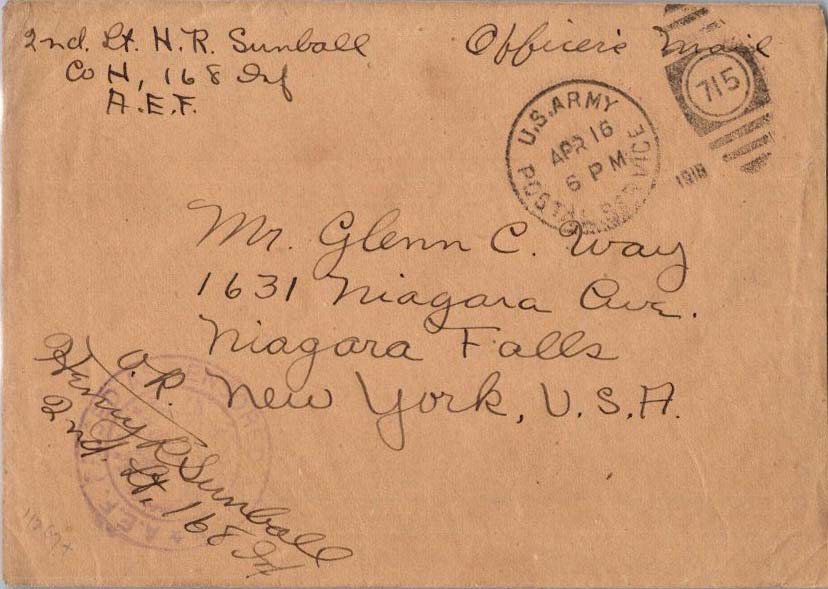 2nd. Lt. H. R. Sunball
Co H, 168 Inf
A.E.F.
Officer's Mail
U.S. ARMY
POSTAL SERVICE
APR 16
6 PM
1918
715
Mr. Glenn C. Way
1631 Niagara Ave.
Niagara Falls
New York, U.S.A.
O.K.
Henry R Sunball
2nd. Lt, 168 Inf
A.E.F.